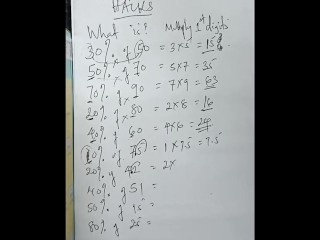 HACKS
What is? Multiply 1st digits
30% of 50 = 3x5 = 15
50% of 70 = 5x7 = 35
70% of 90 = 7x9 = 63
20% of 80 = 2x8 = 16
40% of 60 = 4x6 = 24
10% of 75 = 1x7.5 = 7.5
20% of = 2x
40% of 51 =
50% of 15 =
80% of 25 =